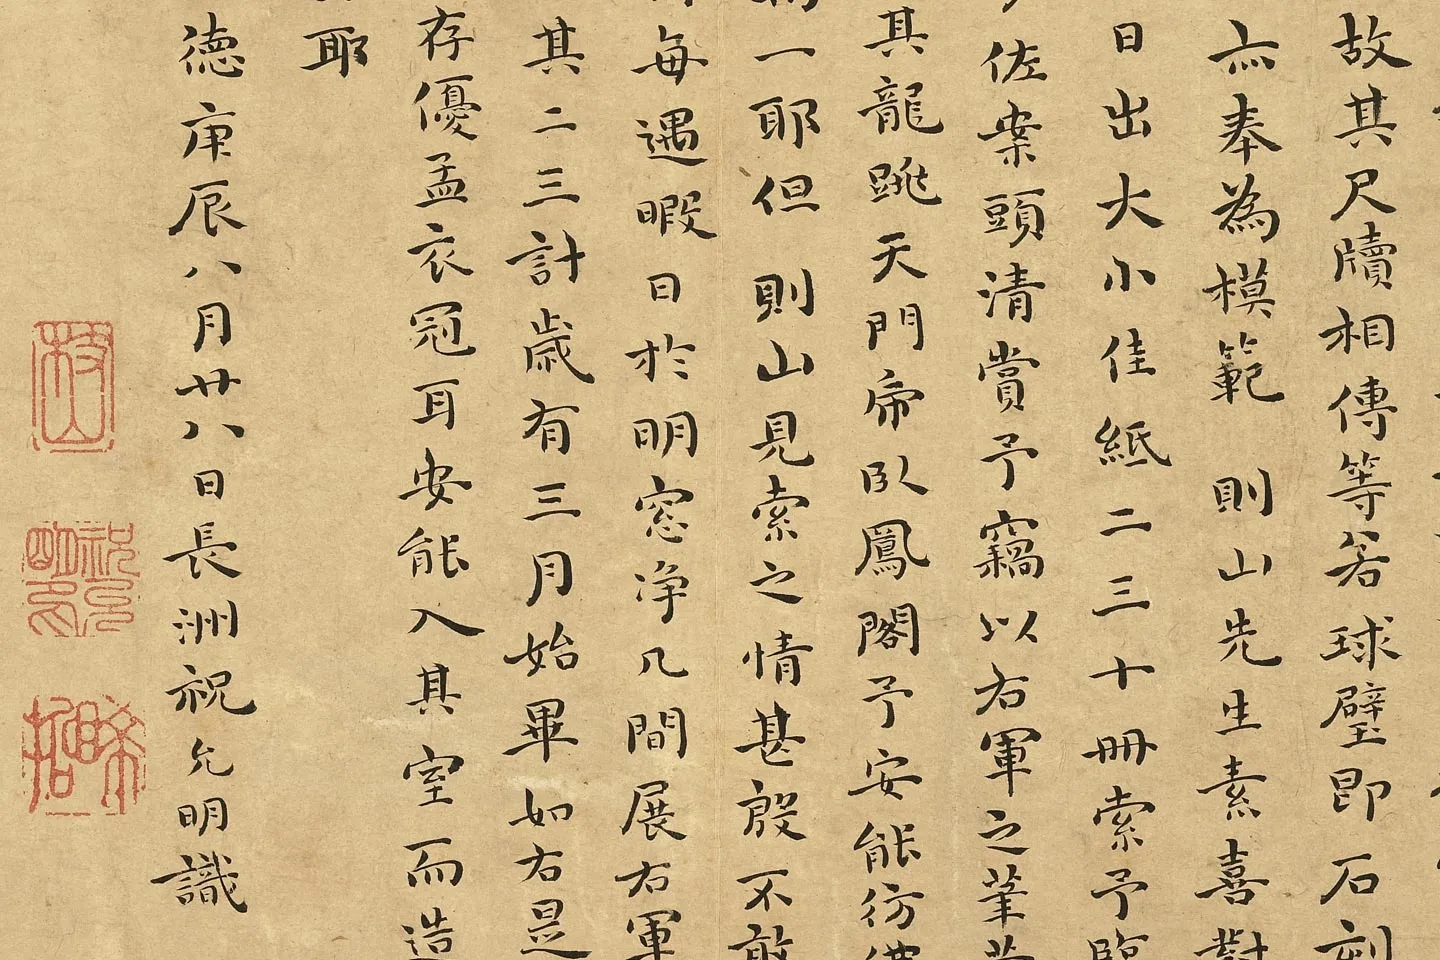 故其尺牘相傳等若球璧即石刻
亦奉為模範則山先生素喜對
日出大小佳紙二三十冊索予臨
佐案頭清賞予竊以右軍之筆
其龍跳天門帝臥鳳閣予安能彷彿
一耶但則山見索之情甚殷不敢
每遇暇日於明窓净几間展右軍
其二三計歲有三月始畢如右是
存優孟衣冠耳安能入其室而造
耶
德庚辰八月廿八日長洲祝允明識
枝山
祝允明印
晞喆